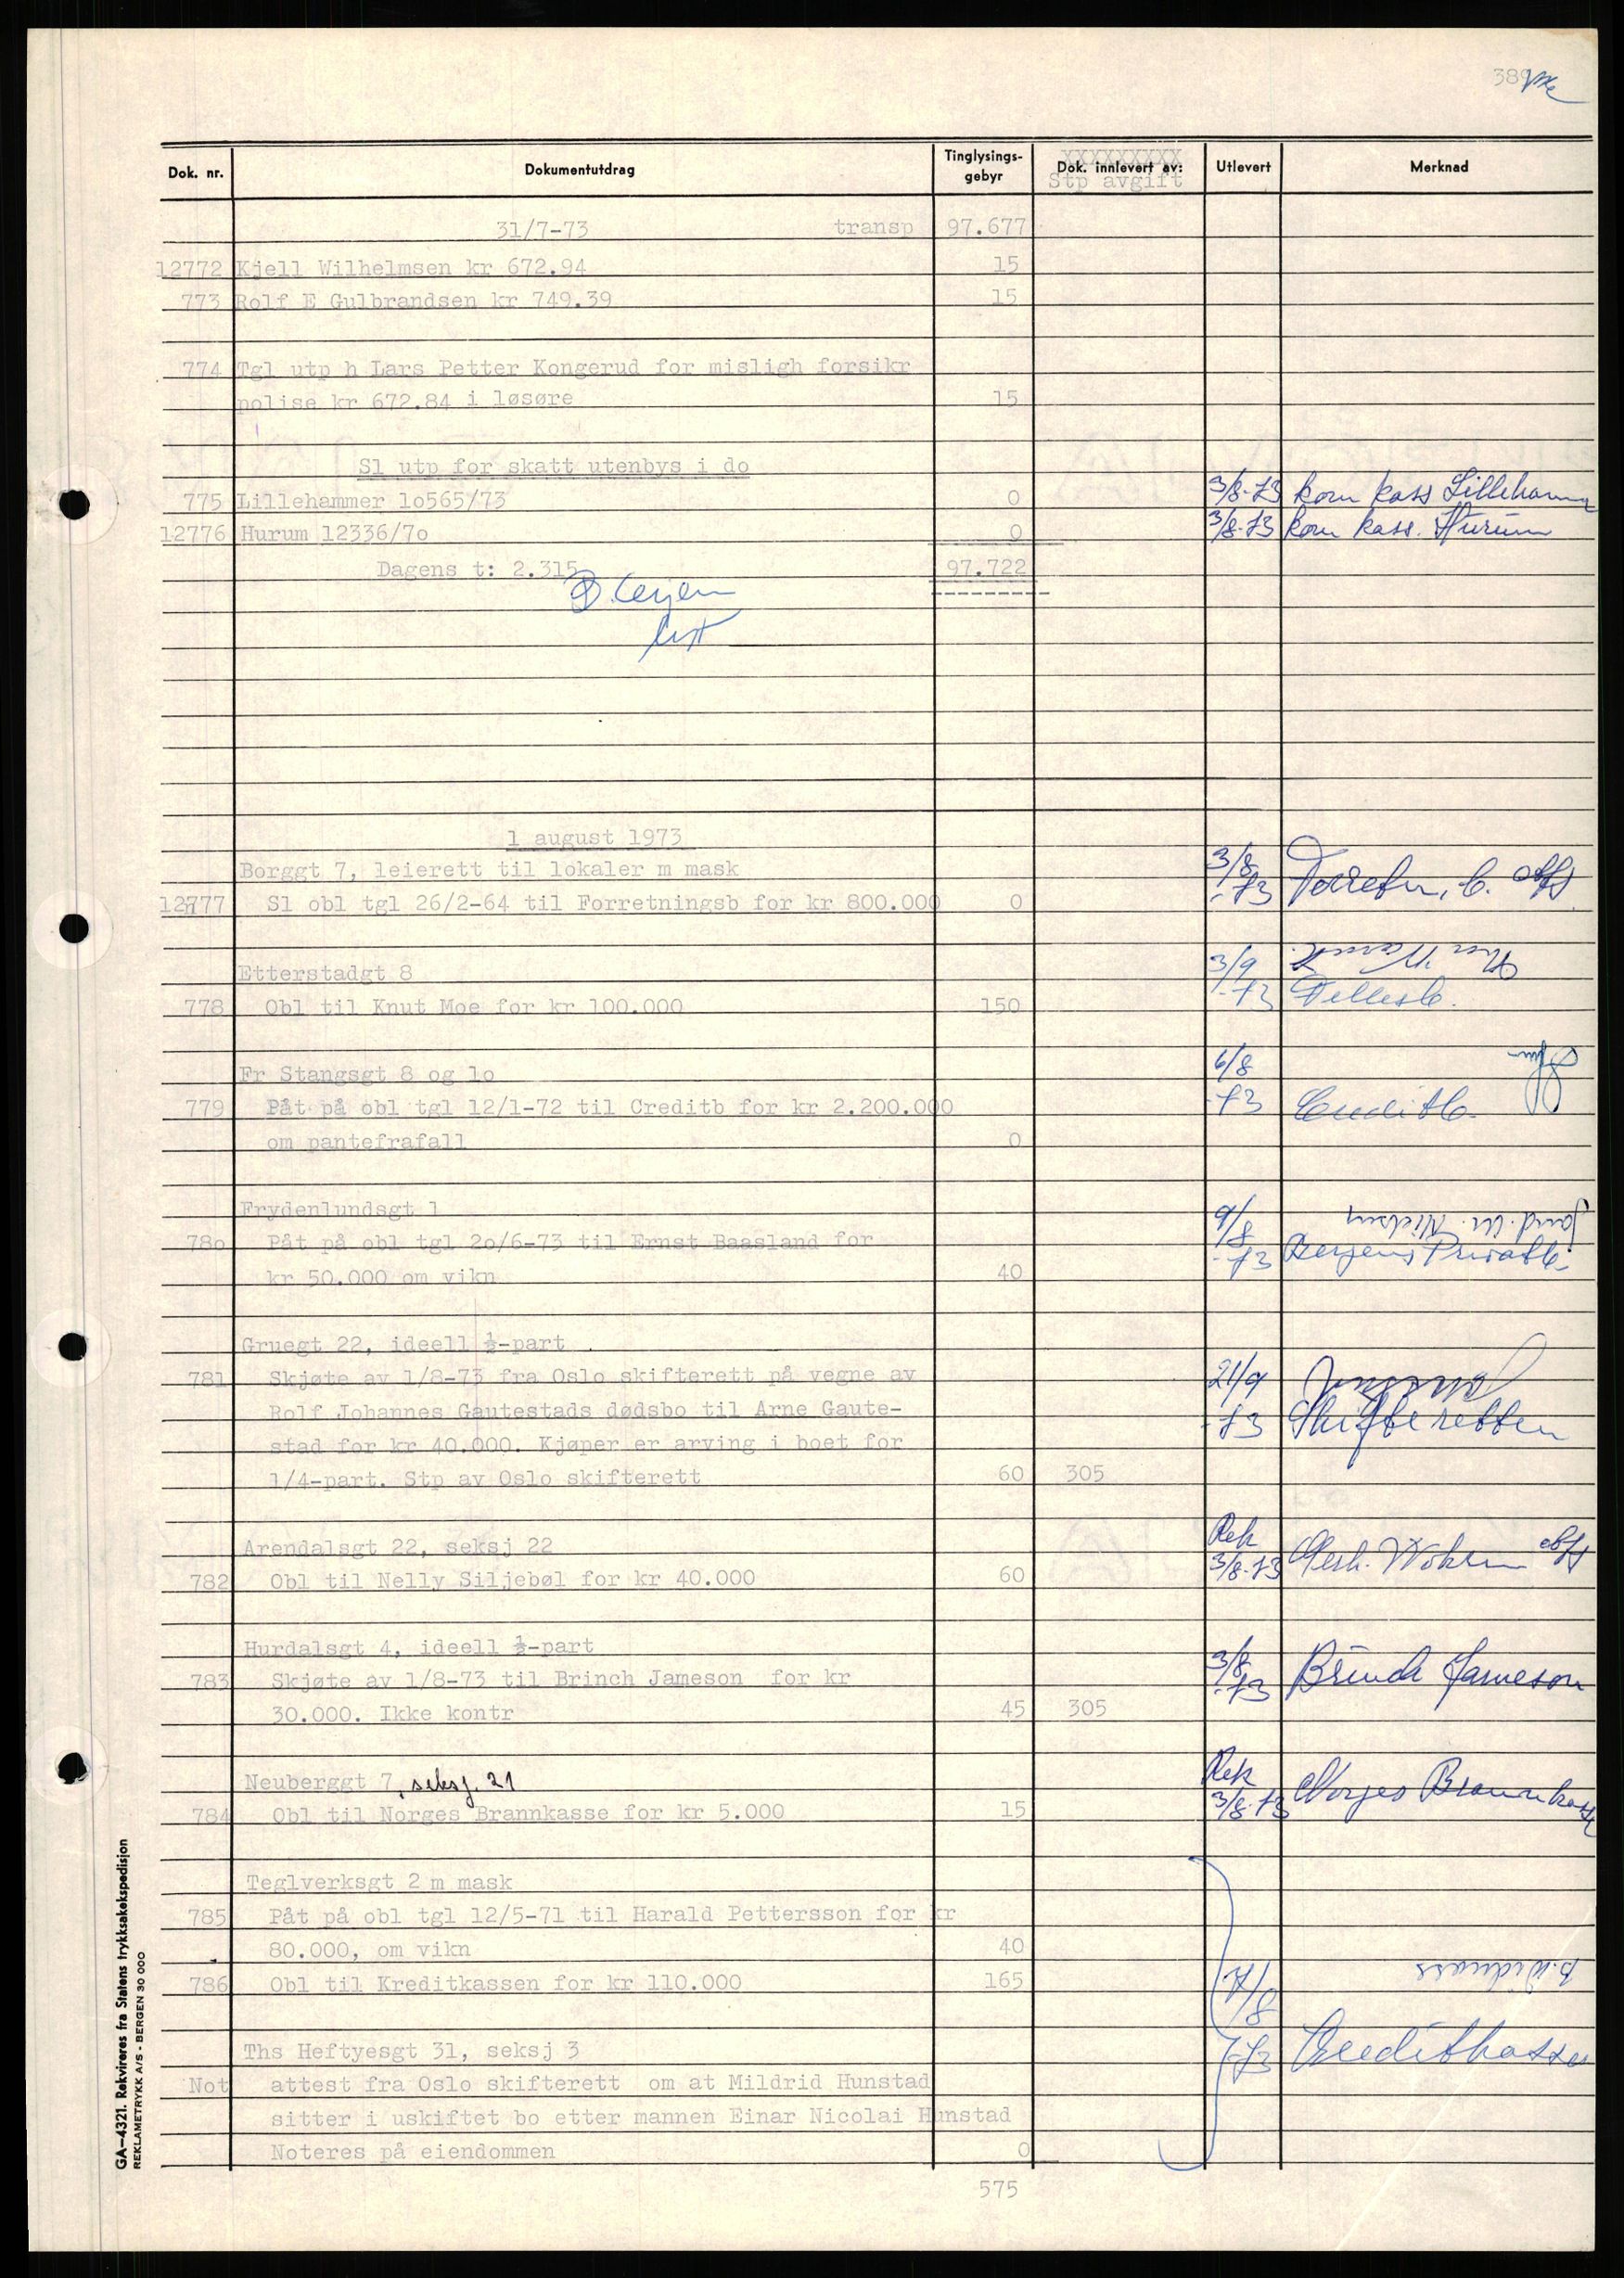 389
Dok. nr. Dokumentutdrag Tinglysings-gebyr Dok. innlevert av: Utlevert Merknad
xxxxxxxxx
Stp avgift
31/7-73 transp 97.677
12772 Kjell Wilhelmsen kr 672.94 15
773 Rolf E Gulbrandsen kr 749.39 15
774 Tgl utp h Lars Petter Kongerud for misligh forsikr
polise kr 672.84 i løsøre 15
Sl utp for skatt utenbys i do
775 Lillehammer 1o565/73 0 3/8-73 kom kass Lillehammer
12776 Hurum 12336/7o 0 3/8-73 kom kass. Hurum
Dagens t: 2.315 97.722
1 august 1973
Borggt 7, leierett til lokaler m mask 3/8
12777 Sl obl tgl 26/2-64 til Forretningsb for kr 800.000 0 -73 Forretn. b.
Etterstadgt 8 3/9
778 Obl til Knut Moe for kr 100.000 150 -73 Fellesb.
Fr Stangsgt 8 og 1o 6/8
779 Påt på obl tgl 12/1-72 til Creditb for kr 2.200.000 -73 Creditb.
om pantefrafall 0
Frydenlundsgt 1 9/8 Nielsen
78o Påt på obl tgl 2o/6-73 til Ernst Baasland for -73 Bergens Privatb.
kr 50.000 om vikn 40
Gruegt 22, ideell ½-part
781 Skjøte av 1/8-73 fra Oslo skifterett på vegne av 21/9
Rolf Johannes Gautestads dødsbo til Arne Gaute- -73 Skifteretten
stad for kr 40.000. Kjøper er arving i boet for
1/4-part. Stp av Oslo skifterett 60 305
Arendalsgt 22, seksj 22 Rek
782 Obl til Nelly Siljebøl for kr 40.000 60 3/8-73
Hurdalsgt 4, ideell ½-part 3/8
783 Skjøte av 1/8-73 til Brinch Jameson for kr -73 Brinch Jameson
30.000. Ikke kontr 45 305
Neuberggt 7, seksj. 21 Rek
784 Obl til Norges Brannkasse for kr 5.000 15 3/8-73 Norges Brannkasse
Teglverksgt 2 m mask
785 Påt på obl tgl 12/5-71 til Harald Pettersson for kr
80.000, om vikn 40
786 Obl til Kreditkassen for kr 110.000 165
Ths Heftyesgt 31, seksj 3 -73 Kreditkassen
Not attest fra Oslo skifterett om at Mildrid Hunstad
sitter i uskiftet bo etter mannen Einar Nicolai Hunstad
Noteres på eiendommen 0
575
GA-4321. Rekvireres fra Statens trykksakekspedisjon
REKLAMETRYKK A/S - BERGEN 30 000